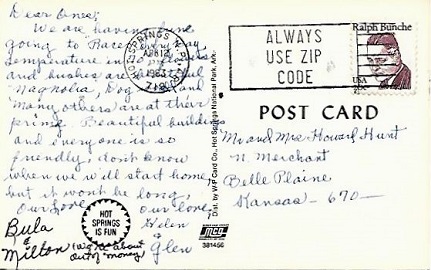 Dear Ones:
We are having fun
going to Races every day,
temperature in
and bushes are
Magnolia, Dog and
many others are at their
prime. Beautiful buildings
and everyone is so
friendly, don't know
when we we'll start home,
but it wont be long,
Our Love, our love,
Bula & Milton
Helen & Glen
(We are about out of money)
HOT SPRINGS IS FUN
HOT SPRINGS N. P.
APR 12
1983
719
ALWAYS
USE ZIP
CODE
Ralph Bunche
USA
20c
POST CARD
Dist. by W-P Card Co., Hot Springs National Park, Ark.
Mr and Mrs Howard Hunt
N. Merchant
Belle Plaine
Kansas - 670
381456